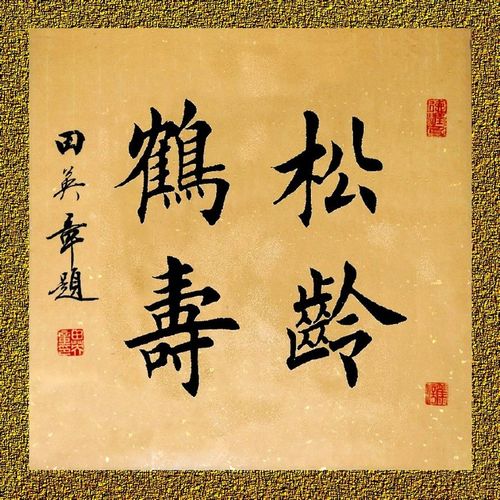 松齡
鶴壽
田英章題